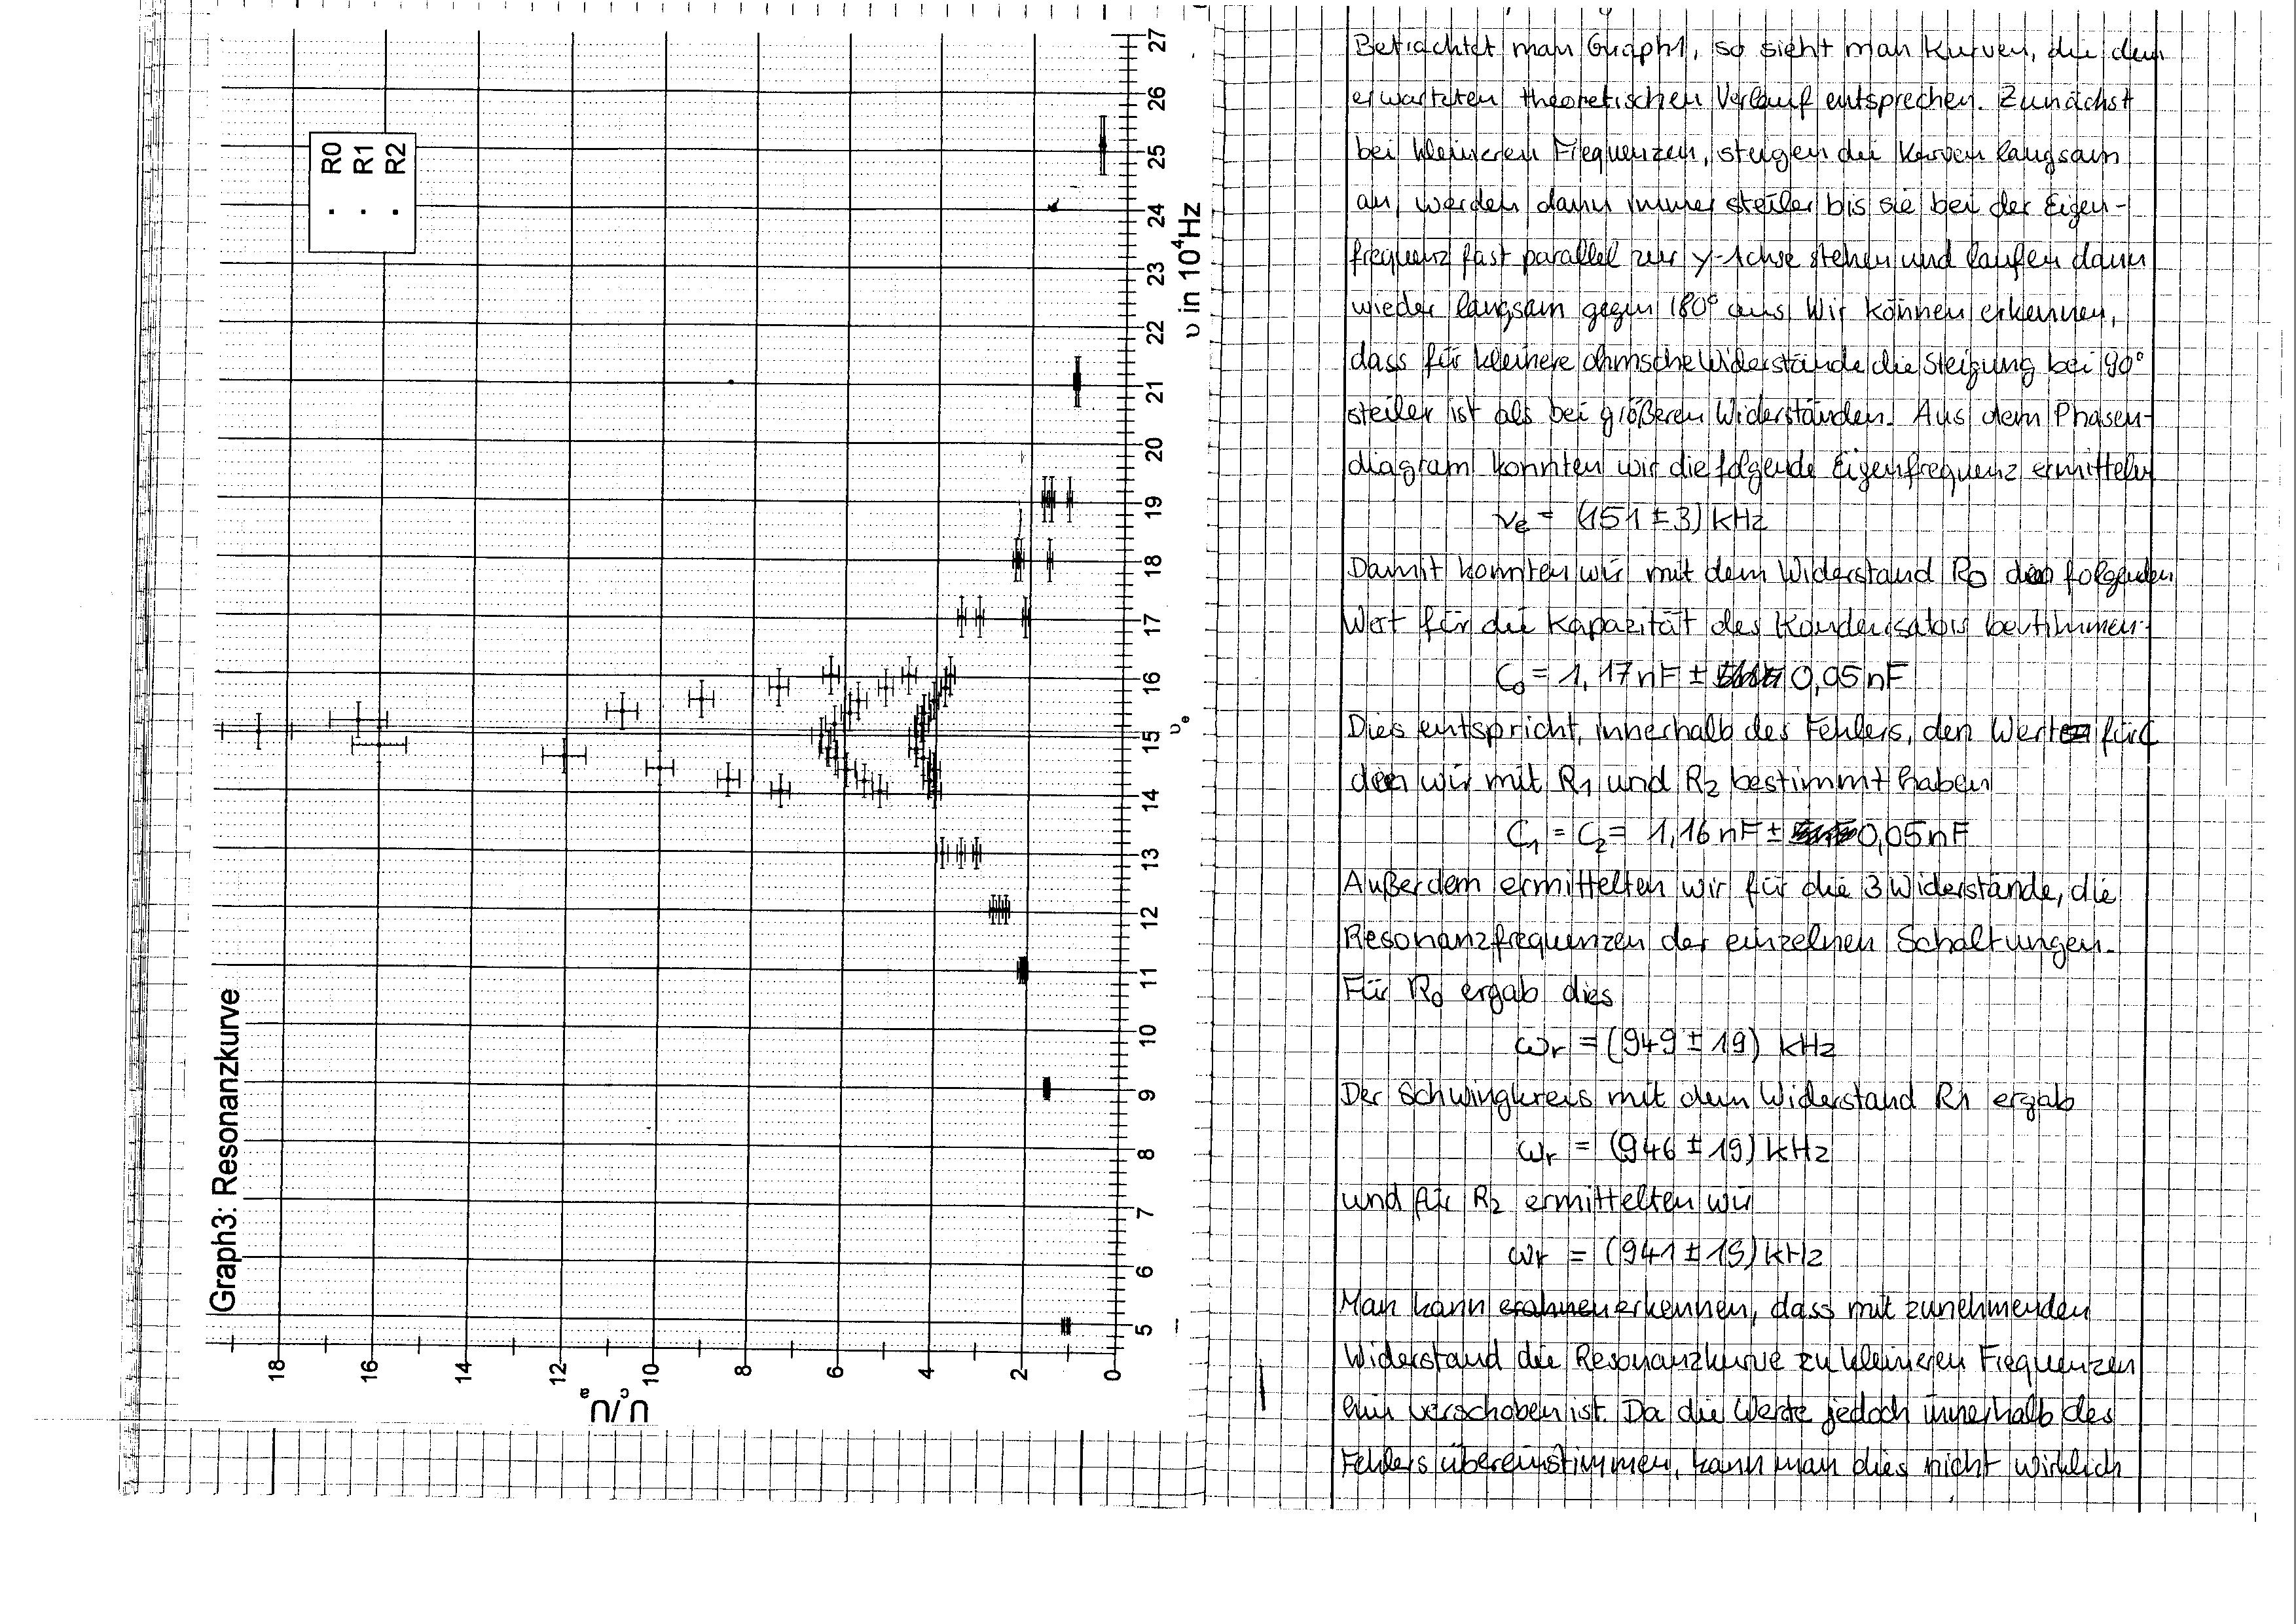 Graph3: Resonanzkurve
U_c/U_a
18
16
14
12
10
8
6
4
2
0
R0
R1
R2
5
6
7
8
9
10
11
12
13
14
15
16
17
18
19
20
21
22
23
24
25
26
27
ν_e
ν in 10^4 Hz
Betrachtet man Graph1, so sieht man Kurven, die dem
erwarteten theoretischen Verlauf entsprechen. Zunächst
bei kleineren Frequenzen, steigen die Kurven langsam
an, werden dann immer steiler bis sie bei der Eigen-
frequenz fast parallel zur y-Achse stehen und laufen dann
wieder langsam gegen 180° aus. Wir können erkennen,
dass für kleinere ohmsche Widerstände die Steigung bei 90°
steiler ist als bei größeren Widerständen. Aus dem Phasen-
diagram konnten wir die folgende Eigenfrequenz ermitteln
ν_e = (151 ± 3) kHz
Damit konnten wir mit dem Widerstand R_0 den folgenden
Wert für die Kapazität des Kondensators bestimmen:
C_0 = 1,17 nF ± 0,05 nF
Dies entspricht, innerhalb des Fehlers, den Wert für C
den wir mit R_1 und R_2 bestimmt haben
C_1 = C_2 = 1,16 nF ± 0,05 nF
Außerdem ermittelten wir für die 3 Widerstände, die
Resonanzfrequenzen der einzelnen Schaltungen.
Für R_0 ergab dies
ω_r = (949 ± 19) kHz
Der Schwingkreis mit dem Widerstand R1 ergab
ω_r = (946 ± 19) kHz
und für R_2 ermittelten wir
ω_r = (941 ± 19) kHz
Man kann erkennen, dass mit zunehmenden
Widerstand die Resonanzkurve zu kleineren Frequenzen
hin verschoben ist. Da die Werte jedoch innerhalb des
Fehlers übereinstimmen, kann man dies nicht wirklich